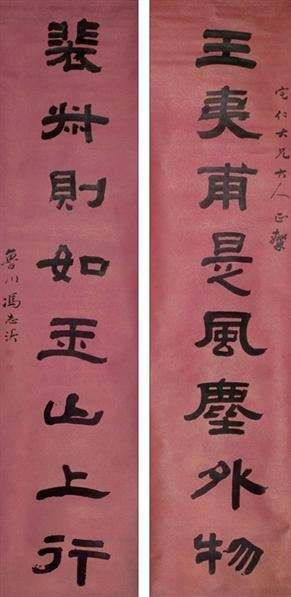 宅仁大兄大人正
王夷甫是風塵外物
裴叔則如玉山上行
魯川馮志沂